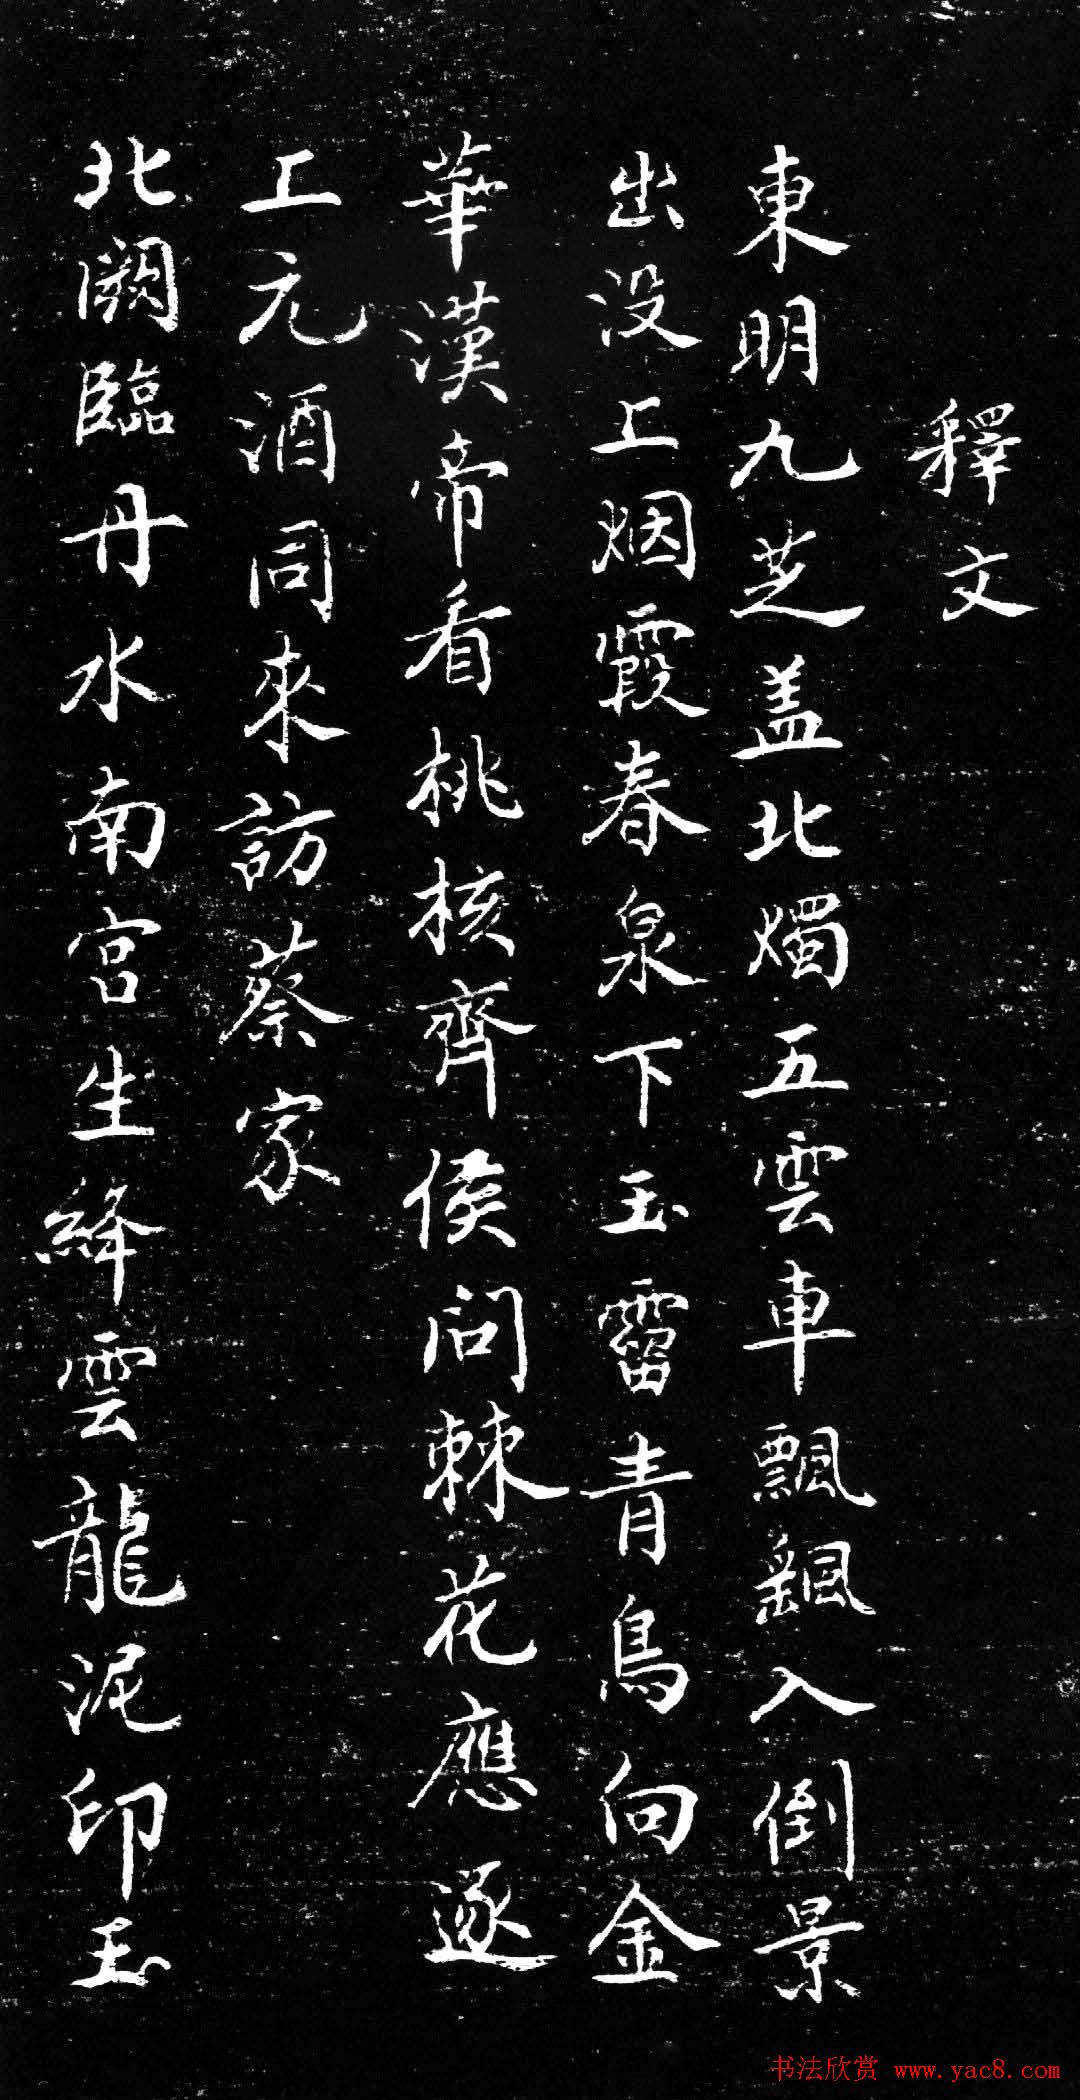 釋文
東明九芝盖北燭五雲車飄飖入倒景
出没上烟霞春泉下玉霤青鳥向金
華漢帝看桃核齊侯問棘花應逐
上元酒同來訪蔡家
北闕臨丹水南宫生絳雲龍泥印玉
书法欣赏 www.yac8.com